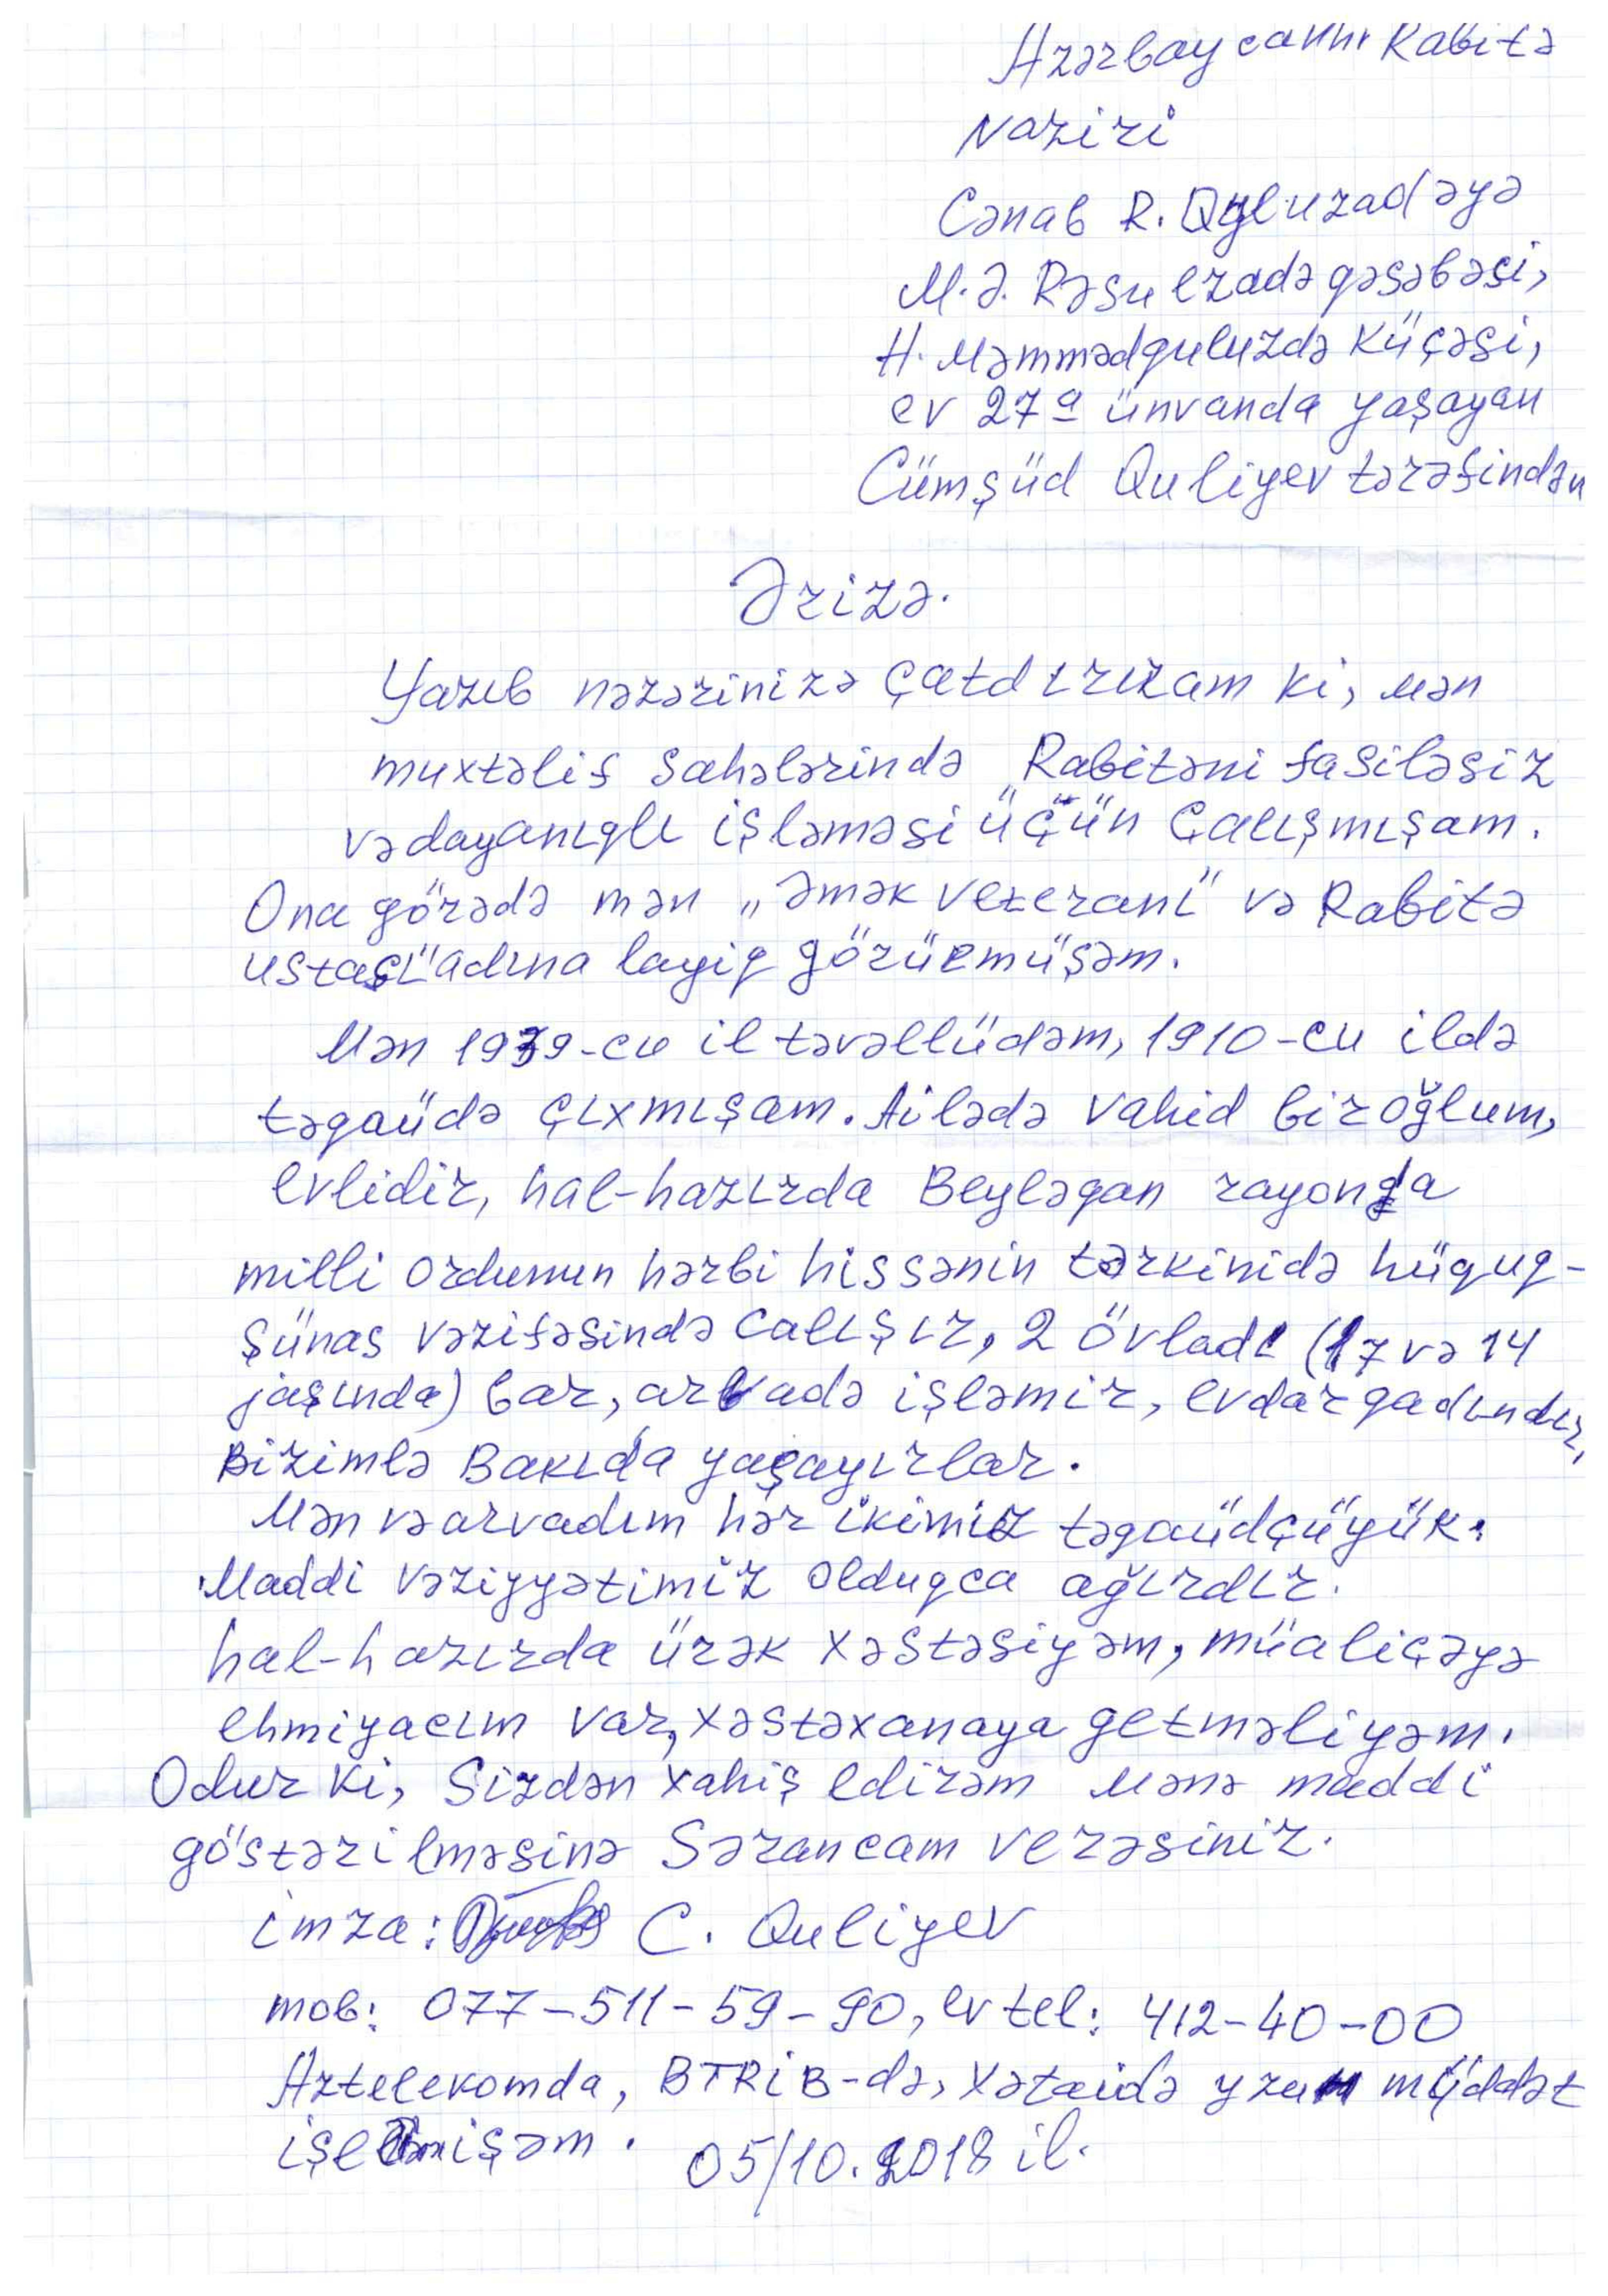 Azərbaycanın Rabitə
Naziri
Cənab R. Quluzadəyə
M.Ə. Rəsulzadə qəsəbəsi,
H. Məmmədquluzdə Küçəsi,
ev 27a ünvanda yaşayan
Cümşüd Quliyev tərəfindən
Ərizə.
Yazıb nəzərinizə çatdırıram ki, mən
muxtəlif sahələrində Rabitəni fasiləsiz
və dayanıqlı işləməsi üçün çalışmışam.
Ona görədə mən „Əmək veteranı" və Rabitə
ustası" adına layiq görülmüşəm.
Mən 1939-cu il təvəllüdəm, 1910-cu ildə
təqaüdə çıxmışam. Ailədə vahid bir oğlum,
evlidir, hal-hazırda Beyləqan rayonda
milli ordunun hərbi hissənin tərkinidə hüquq-
şünas vəzifəsində calışır, 2 övladı (17 və 14
jaşında) bar, arvadə işləmir, evdar qadındır,
Bizimlə Bakıda yaşayırlar.
Mən və arvadım hər ikimiz təqaüdçüyük.
Maddi vəziyyətimiz olduqca ağırdır.
hal-hazırda ürək xəstəsiyəm, müaliçəyə
ehmiyacım var, xəstəxanaya getməliyəm.
Odur ki, Sizdən xahiş edirəm mənə maddi
göstərilməsinə Sərancam verəsiniz.
imza: C. Quliyev
mob: 077-511-59-90, ev tel: 412-40-00
Aztelekomda, BTRİB-də, Xətaidə yzun müddət
işləmişəm. 05/10.2018 il.